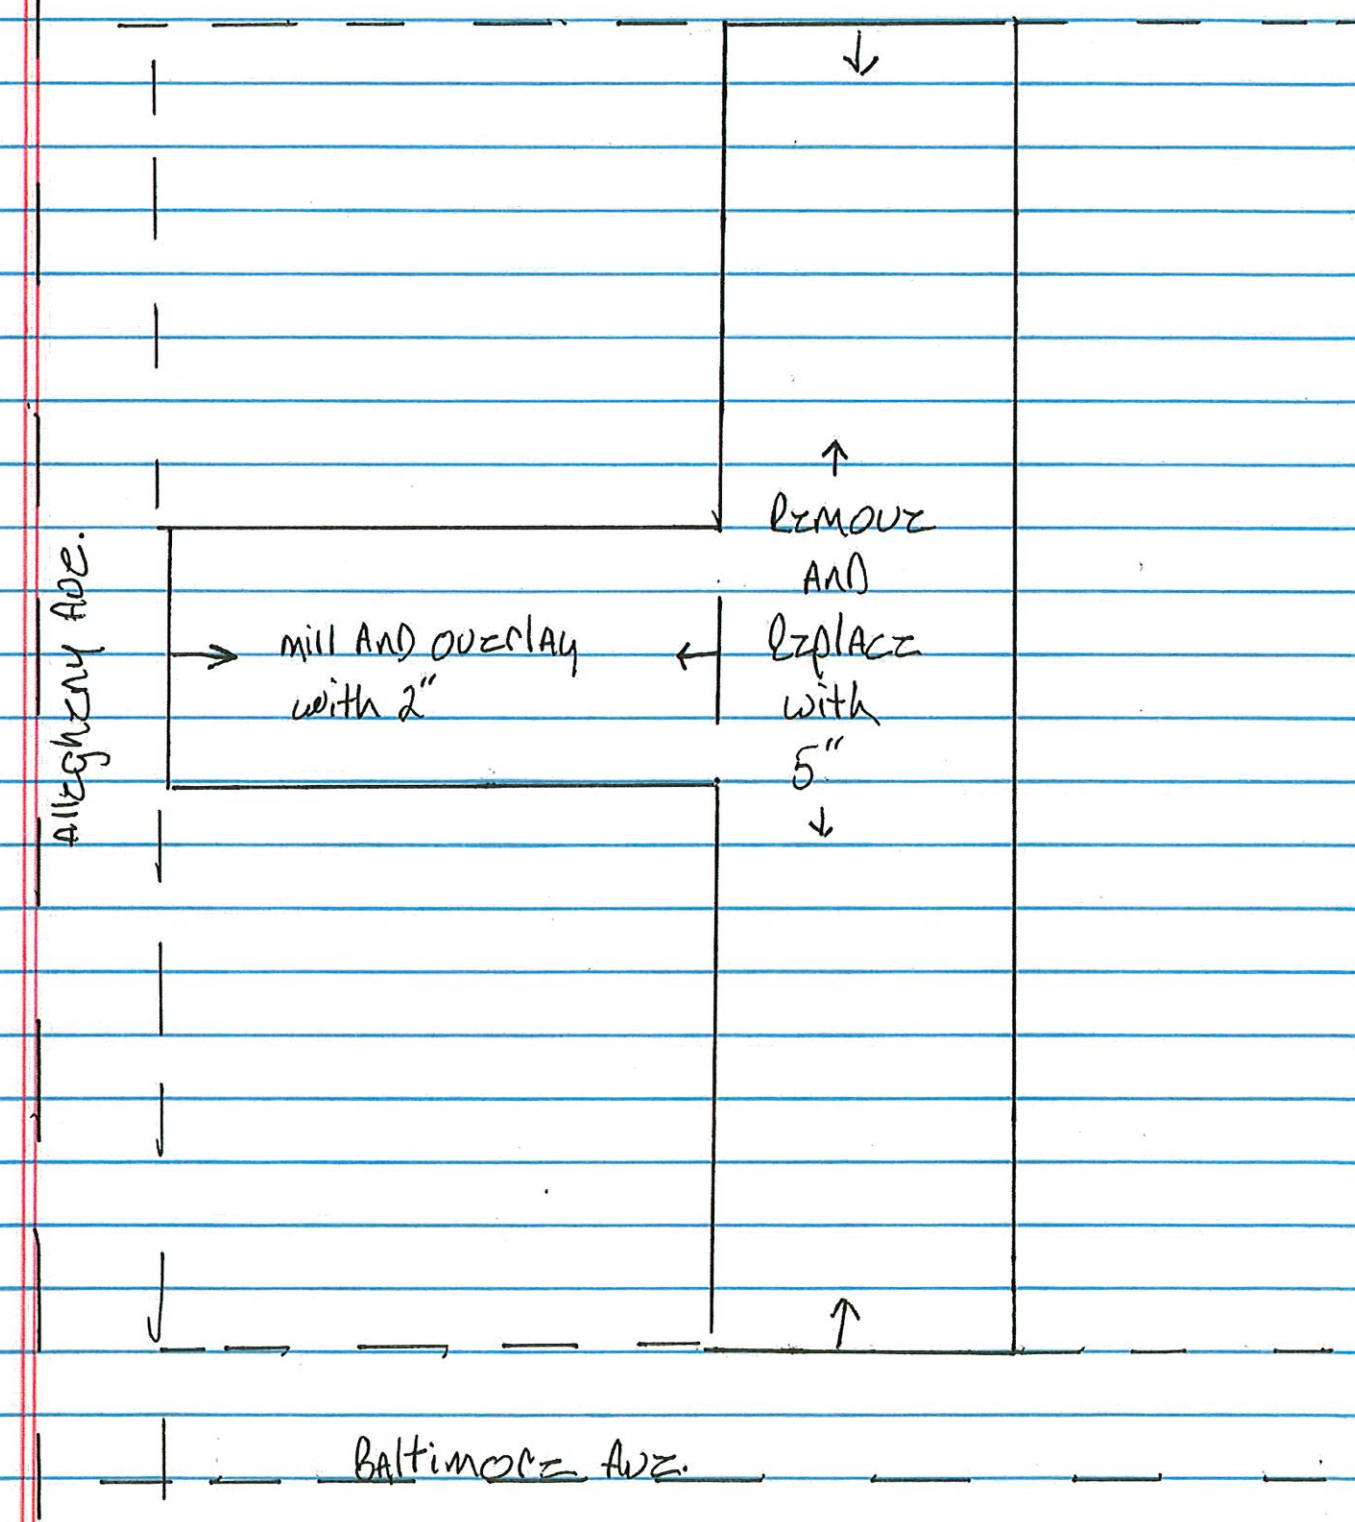 Allegheny Ave.
mill AND overlay
with 2"
Remove
AND
Replace
with
5"
Baltimore Ave.